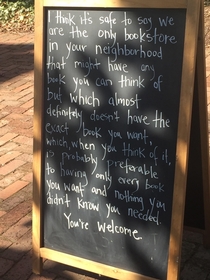 I think it's safe to say we
are the only bookstore
in your neighborhood
that might have any
book you can think of
but which almost
definitely doesn't have the
exact book you want,
which, when you think of it,
is probably preferable
to having only every book
you want and nothing you
didn't know you needed.
You're welcome.